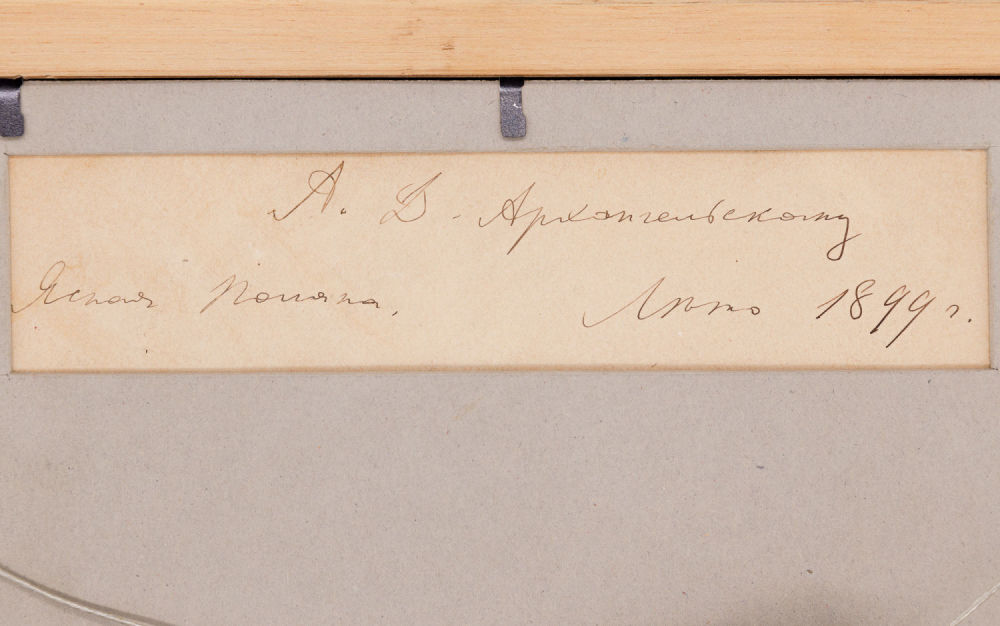 А. В. Архангельскому
Ясная Поляна. Лѣто 1899 г.